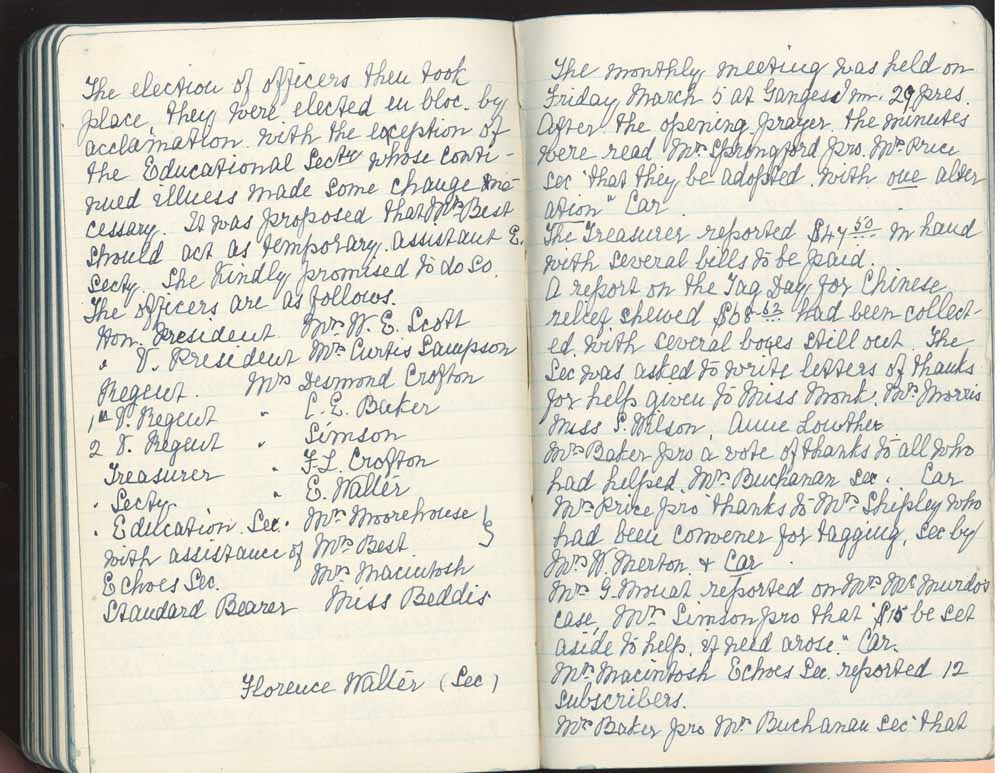 The election of officers then took
place, they were elected en bloc. by
acclamation. with the exception of
the Educational Secty whose conti-
nued illness made some change ne-
cessary. It was proposed that Mrs Best
should act as temporary. assistant E.
Secty. She kindly promised to do so.
The officers are as follows.
Hon. President Mrs W. E. Scott
" V. President Mrs Curtis Sampson
Regent. Mrs Desmond Crofton
1st V. Regent " C. E. Baker
2 V. Regent " Simson
Treasurer " F. L. Crofton
" Secty " E. Walter
" Education Sec. Mrs Moorehouse }
with assistance of Mrs Best.
Echoes Sec. Mrs Macintosh
Standard Bearer Miss Beddis
Florence Walter (Sec)
The monthly meeting was held on
Friday March 5 at Ganges Inn. 29 pres.
After the opening prayer. the minutes
were read Mrs Springford pro. Mrs Price
sec "that they be adopted with one alter
ation" Car.
The Treasurer reported $47.53 in hand
with several bills to be paid.
A report on the Tag Day for Chinese
relief, shewed $68.52 had been collect-
ed. with several boxes still out. The
Sec was asked to write letters of thanks
for help given to Miss Monk, Mrs Morris
Miss S. Wilson, Anne Lowther.
Mrs Baker pro a vote of thanks to all who
had helped. Mrs Buchanan sec. Car
Mrs Price pro thanks to Mrs Shipley who
had been convener for tagging, sec by
Mrs W. Merton & Car.
Mrs G. Mouat reported on Mrs McMurdo's
case, Mrs Simson pro that "$15 be set
aside to help, if need arose." Car.
Mrs Macintosh Echoes Sec. reported 12
subscribers.
Mrs Baker pro Mrs Buchanan sec "that